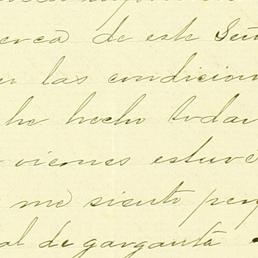 erca de este Señ
las condicion
he hecho todav
viernes estuve
me siento
al de garganta